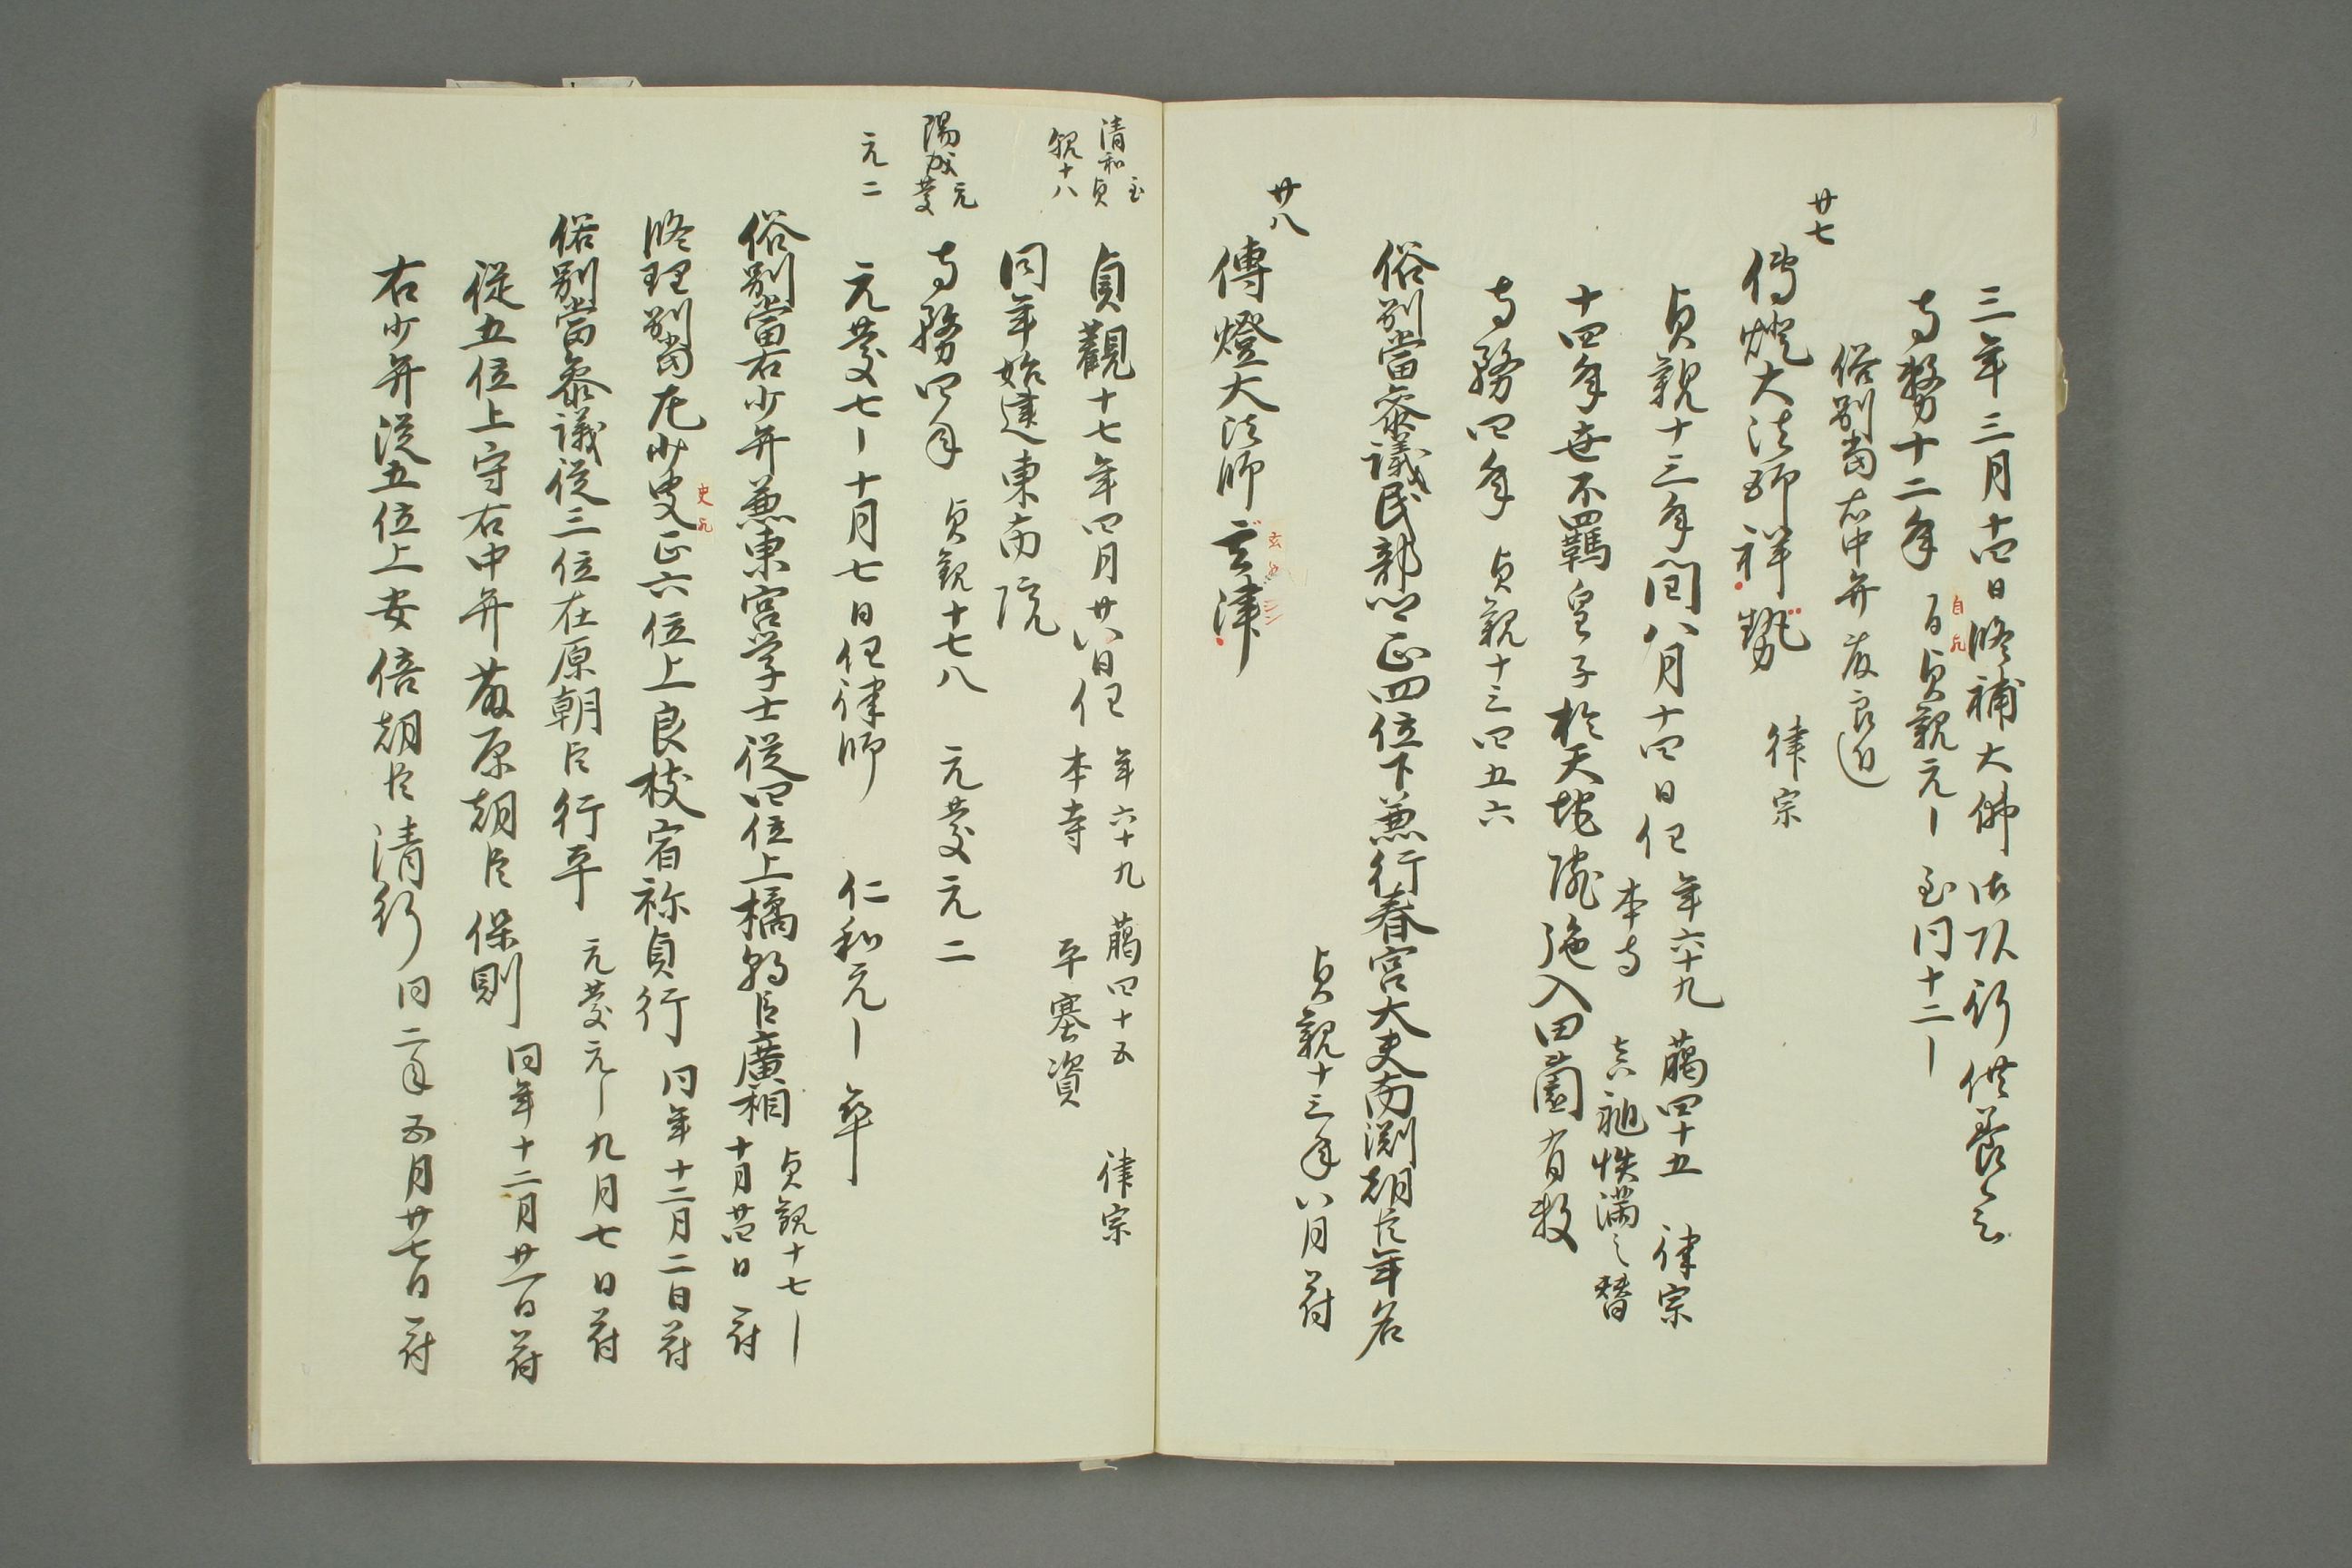 三年三月十四日修補大佛御頭行供養会
寺務十二年 自貞観元〡至同十二〡
自歟
俗別當右中弁藤良近
廿七
傳燈大法師祥勢 律宗
貞観十三年閏八月十四日任 年六十九 﨟四十五 律宗
本寺 真禎怢満之替
十四年世不羈皇子於天地院施入田薗有数
寺務四年 貞観十三四五六
俗別當参議民部卿正四位下兼行春宮大夫南淵朝臣年名
貞観十三年八月符
廿八
傳燈大法師玄津
玄
清和貞観十八
至
貞觀十七年四月廿八日任 年六十九 﨟四十五 律宗
本寺 平塞資
同年始建東南院
陽成元慶元二
寺務四年 貞観十七八 元慶元二
元慶七〡十月七日任律師 仁和元〡卒
俗別當右少弁兼東宮学士従四位上橘朝臣廣相 貞観十七〡十月廿四日符
修理別當左少史正六位上良枝宿祢貞行 同年十二月二日符
史歟
俗別當参議従三位在原朝臣行平 元慶元〡九月七日符
従五位上守右中弁藤原朝臣保則 同年十二月廿一日符
右少弁従五位上安倍朝臣清行 同二年五月廿七日符